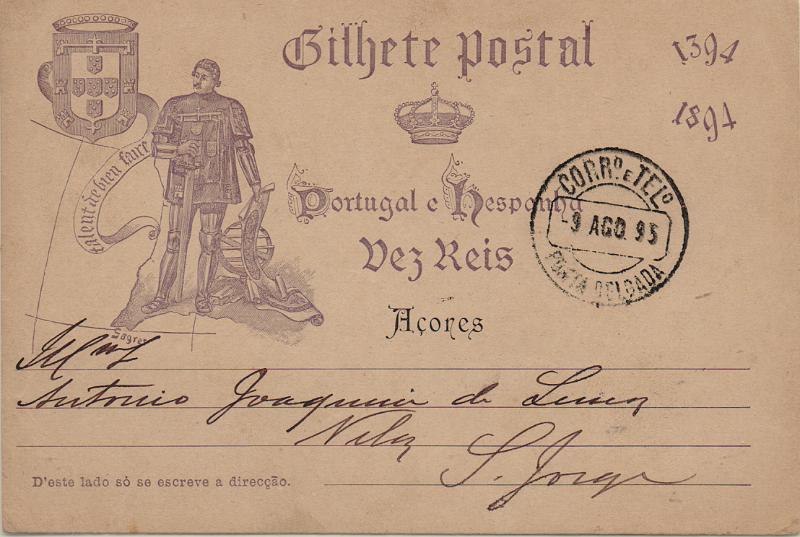 Bilhete Postal
1394
1894
talent de bien faire
Portugal e Hespanha
Dez Reis
Açores
Sagres
CORRO. E TELO.
9 AGO. 95
PONTA DELGADA
Antonio Joaquim de
Velas
S. Jorge
D'este lado só se escreve a direcção.